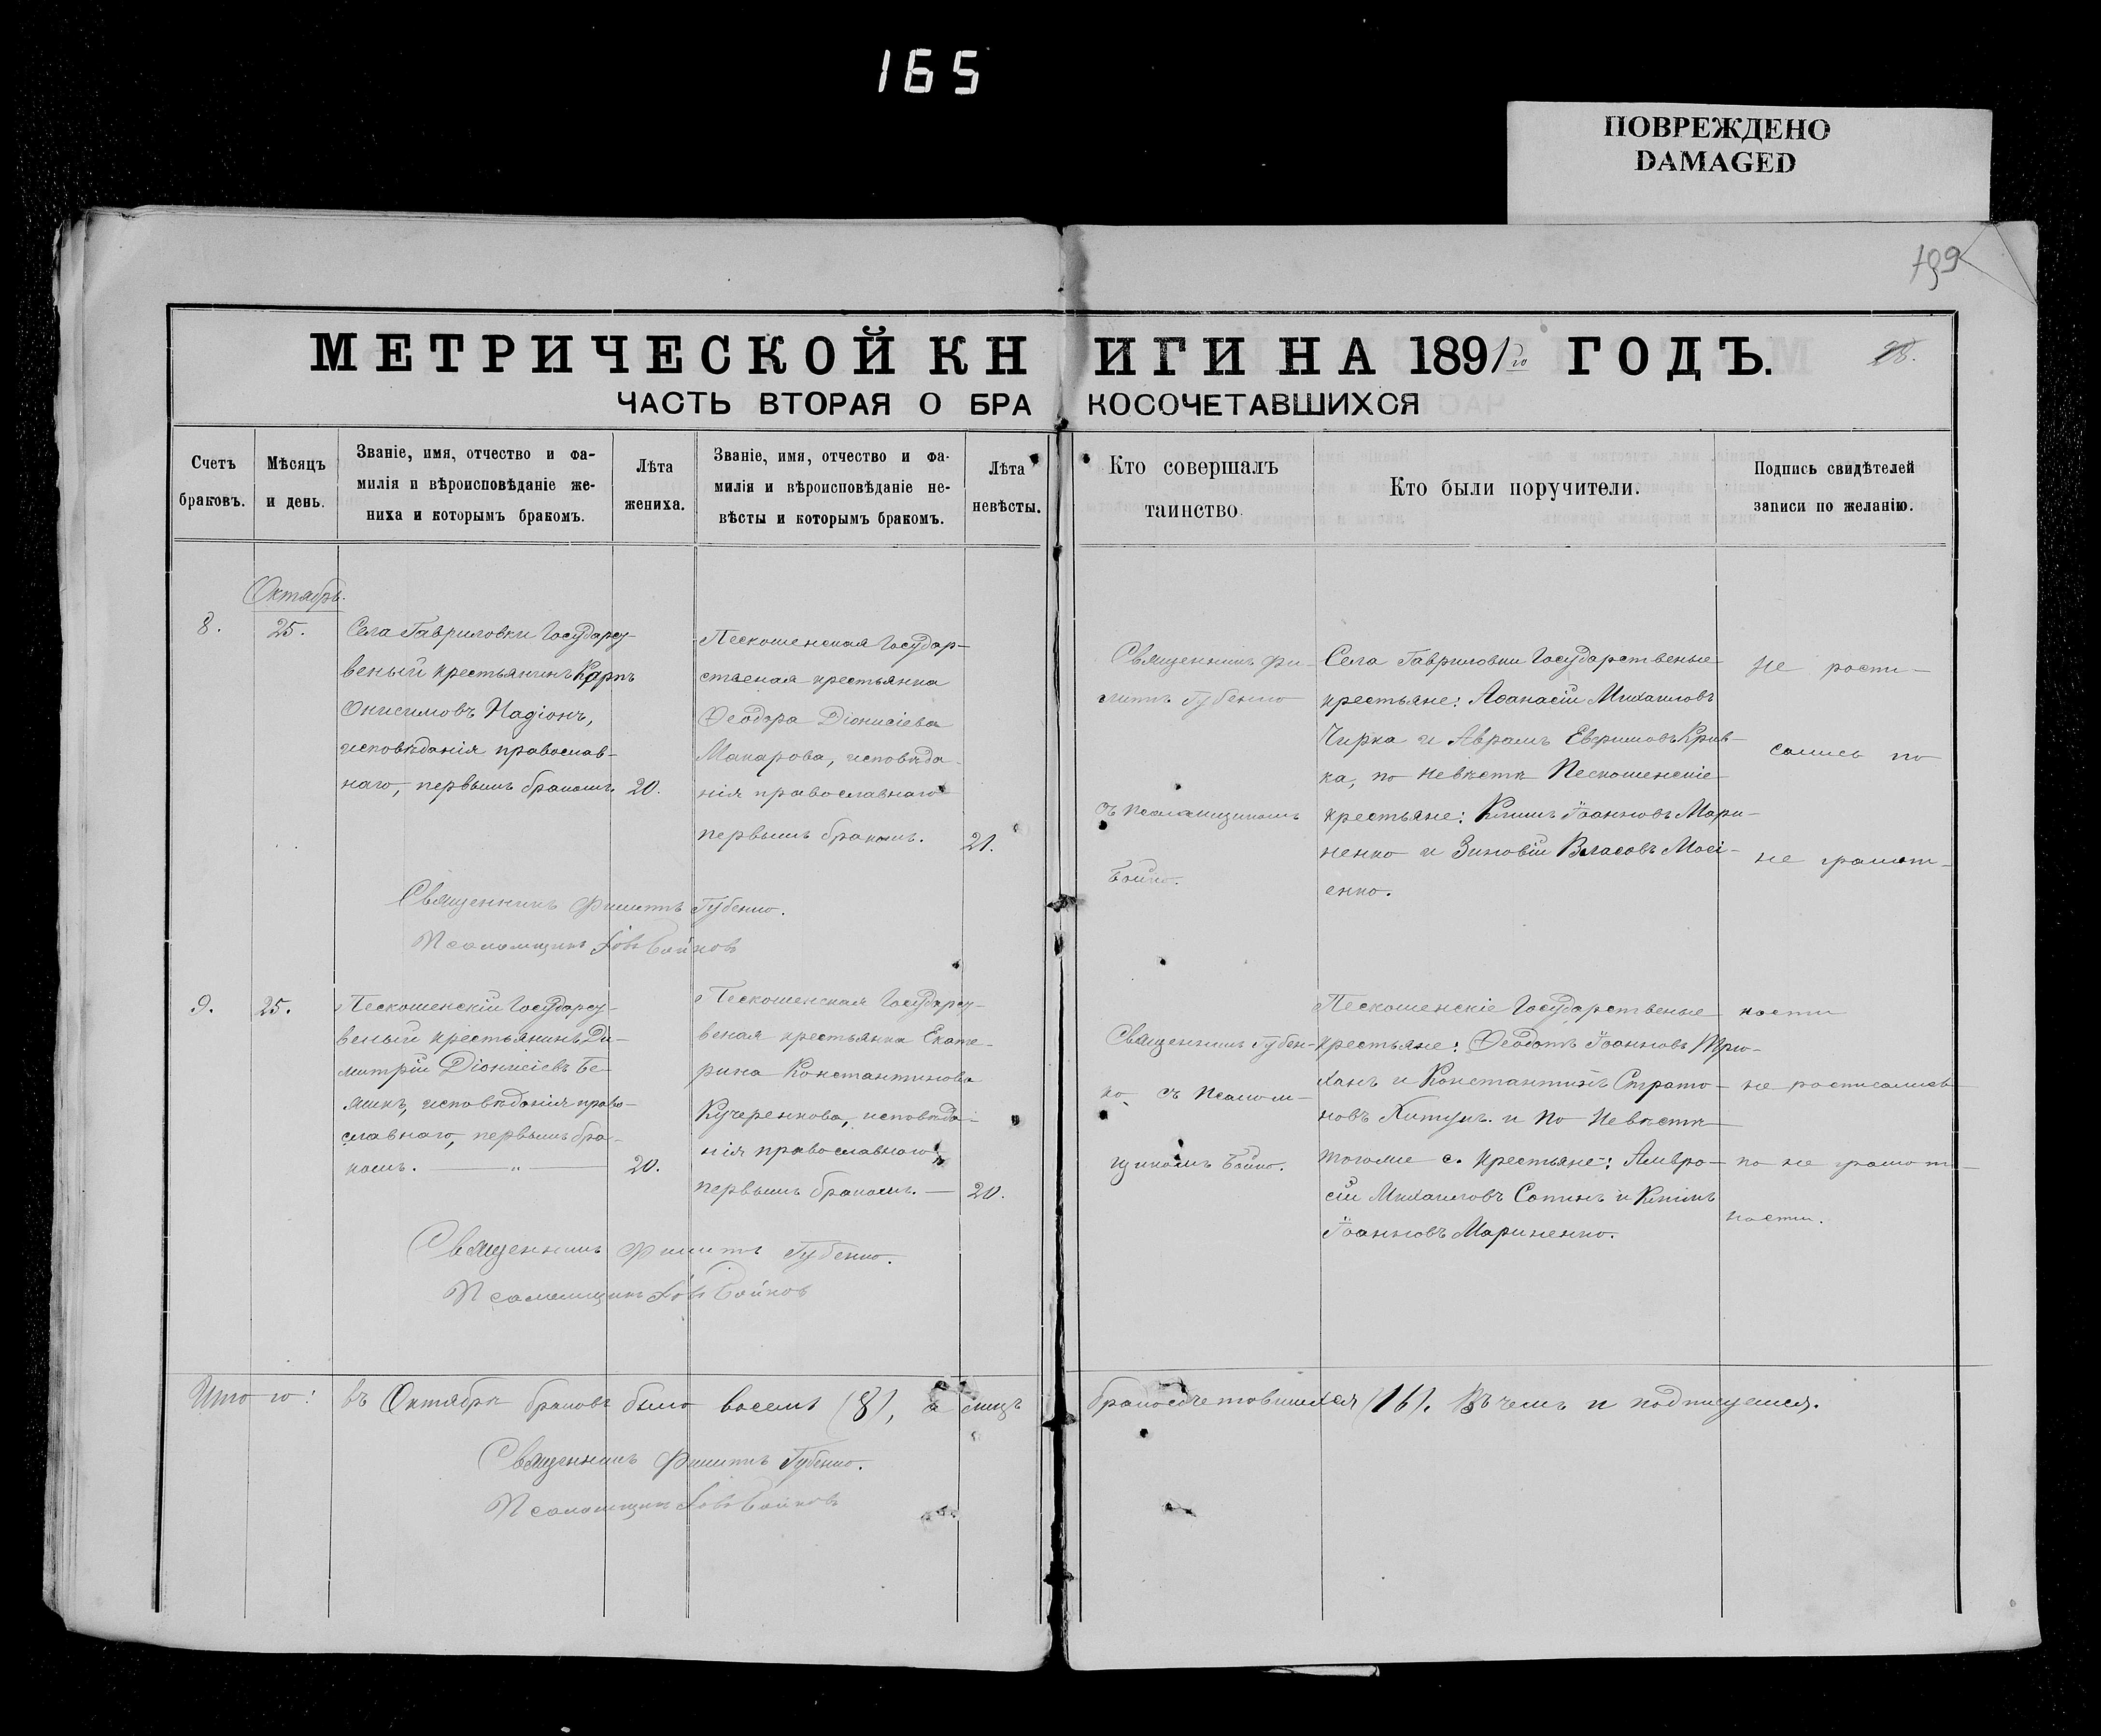 165
ПОВРЕЖДЕНО
DAMAGED
199
МЕТРИЧЕСКОЙ КНИГИ НА 1891го ГОДЪ.
28.
ЧАСТЬ ВТОРАЯ О БРАКОСОЧЕТАВШИХСЯ
Счетъ
браковъ.
Мѣсяцъ
и день.
Званіе, имя, отчество и фа-
милія и вѣроисповѣданіе же-
ниха и которымъ бракомъ.
Лѣта
жениха.
Званіе, имя, отчество и фа-
милія и вѣроисповѣданіе не-
вѣсты и которымъ бракомъ.
Лѣта
невѣсты.
Кто совершалъ
таинство.
Кто были поручители.
Подпись свидѣтелей
записи по желанію.
Октябрь.
8.
25.
Села Гавриловки Государст-
веный крестьянинъ Карпъ
Онисимовъ Надіонъ,
исповѣданія православ-
наго, первымъ бракомъ.
20.
Пескошенская Государ-
ственая крестьянка
Ѳеодора Діонисіева
Макарова, исповѣда-
нія православнаго
первымъ бракомъ.
21.
Священникъ Фи-
липпъ Губенко
съ псаломщикомъ
Бойко.
Села Гавриловки Государственые
крестьяне: Аѳанасій Михаиловъ
Чирка и Аврамъ Евфимовъ Крив-
ка, по невѣстѣ Пескошенскіе
крестьяне: Климъ Іоанновъ Мари-
ненко и Зиновій Власовъ Мосі-
енко.
Не роспи-
сались по
не грамот-
Священникъ Филиппъ Губенко.
Псаломщикъ Іовъ Бойковъ
9.
25.
Пескошенскій Государст-
веный крестьянинъ Ди-
митрій Діонисіевъ Бе-
ликъ, исповѣданія право-
славнаго, первымъ бра-
комъ. — „ —
20.
Пескошенская Государст-
веная крестьянка Екате-
рина Константинова
Кучеренкова, исповѣда-
нія православнаго
первымъ бракомъ. —
20.
Священникъ Губен-
ко съ псалом-
щикомъ Бойко.
Пескошенскіе Государственые
крестьяне: Ѳеодотъ Іоанновъ Трю-
ханъ и Константинъ Страто-
новъ Хитунъ. и по невѣстѣ
тогоже с. крестьяне: Амвро-
сій Михаиловъ Сопинъ и Климъ
Іоанновъ Мариненко.
ности
не росписались
по не грамот-
ности.
Священникъ Филиппъ Губенко.
Псаломщикъ Іовъ Бойковъ
Итого: въ Октябрѣ браковъ было восемь (8), а лицъ бракосочетовшихся (16). Въ чемъ и подписуемся.
Священникъ Филиппъ Губенко.
Псаломщикъ Іовъ Бойковъ